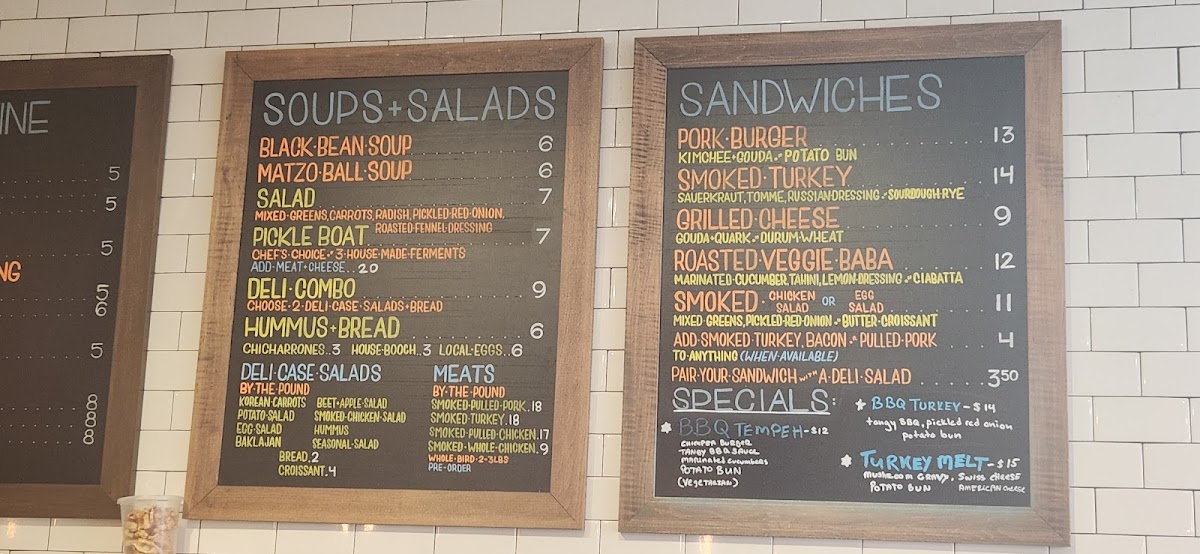 INE
5
5
5
NG
5
6
5
8
8
8
8
SOUPS+SALADS
BLACK·BEAN·SOUP 6
MATZO·BALL·SOUP 6
SALAD 7
MIXED·GREENS, CARROTS, RADISH, PICKLED·RED·ONION,
ROASTED·FENNEL·DRESSING
PICKLE BOAT 7
CHEF'S·CHOICE·3·HOUSE·MADE·FERMENTS
ADD·MEAT+CHEESE..20
DELI·COMBO 9
CHOOSE·2·DELI·CASE·SALADS+BREAD
HUMMUS+BREAD 6
CHICHARRONES..3 HOUSE·BOOCH..3 LOCAL·EGGS..6
DELI·CASE·SALADS
BY·THE·POUND
KOREAN·CARROTS BEET+APPLE·SALAD
POTATO·SALAD SMOKED·CHICKEN·SALAD
EGG·SALAD HUMMUS
BAKLAJAN SEASONAL·SALAD
BREAD.2
CROISSANT.4
MEATS
BY·THE·POUND
SMOKED·PULLED·PORK.18
SMOKED·TURKEY.18
SMOKED·PULLED·CHICKEN.17
SMOKED·WHOLE·CHICKEN.9
WHOLE·BIRD·2-3LBS
PRE-ORDER
SANDWICHES
PORK·BURGER 13
KIMCHEE+GOUDA POTATO BUN
SMOKED·TURKEY 14
SAUERKRAUT, TOMME, RUSSIAN·DRESSING SOURDOUGH·RYE
GRILLED·CHEESE 9
GOUDA+QUARK DURUM·WHEAT
ROASTED·VEGGIE·BABA 12
MARINATED·CUCUMBER, TAHINI, LEMON·DRESSING CIABATTA
SMOKED·CHICKEN SALAD OR EGG SALAD 11
MIXED·GREENS, PICKLED·RED·ONION BUTTER·CROISSANT
ADD·SMOKED·TURKEY, BACON PULLED·PORK 4
TO·ANYTHING (WHEN·AVAILABLE)
PAIR·YOUR·SANDWICH WITH A·DELI·SALAD 3.50
SPECIALS:
BBQ TEMPEH-$12
CHIMPER BURGER
TANGY BBQ SAUCE
MARINATED CUCUMBERS
POTATO BUN
(VEGETARIAN)
BBQ TURKEY-$14
tangy BBQ, pickled red onion
potato bun
TURKEY MELT-$15
MUSHROOM GRAVY, SWISS CHEESE
POTATO BUN AMERICAN CHEESE